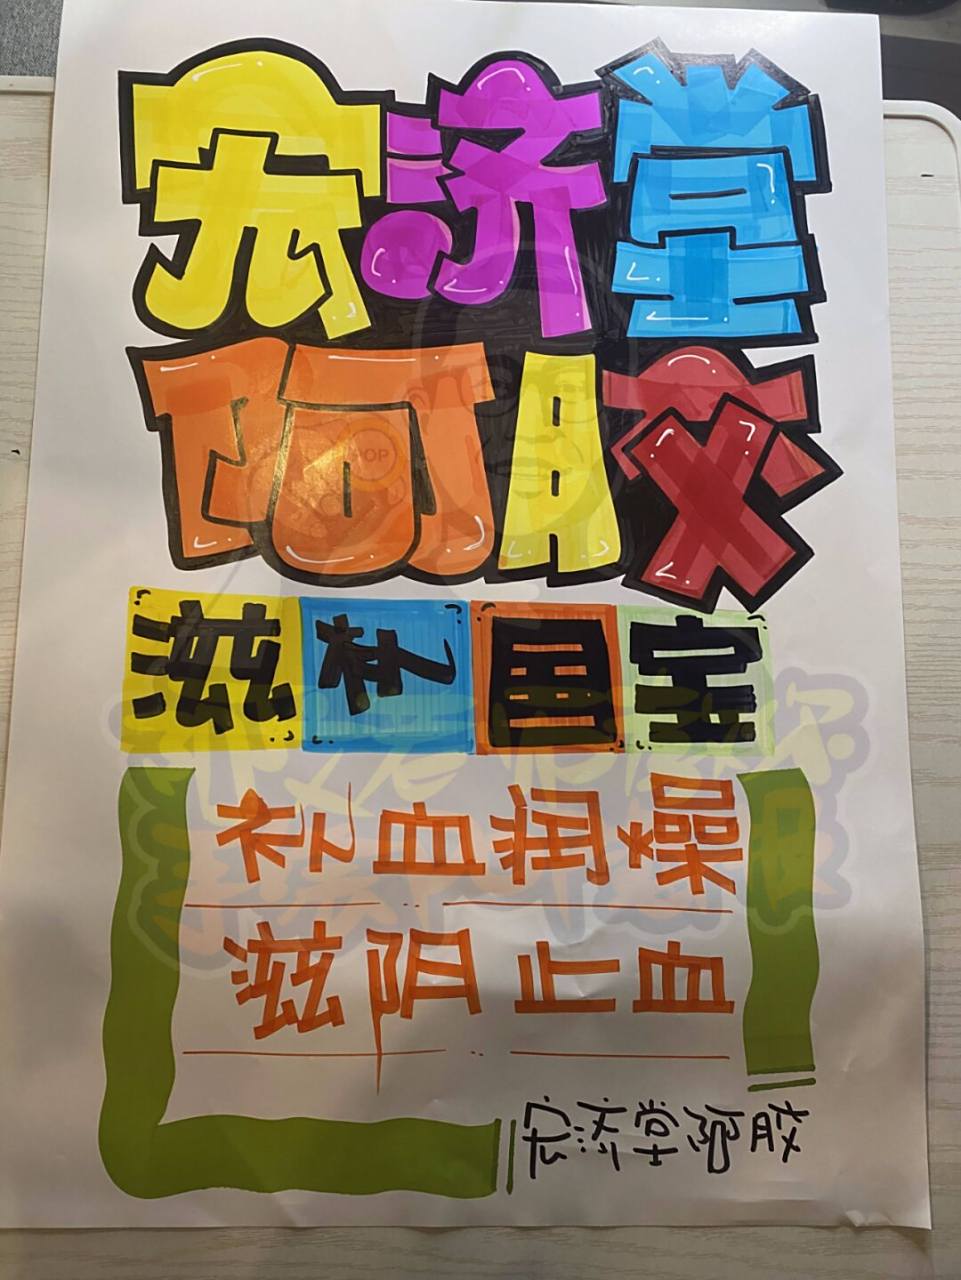 宏济堂
阿胶
滋补国宝
补血润燥
滋阴止血
宏济堂阿胶